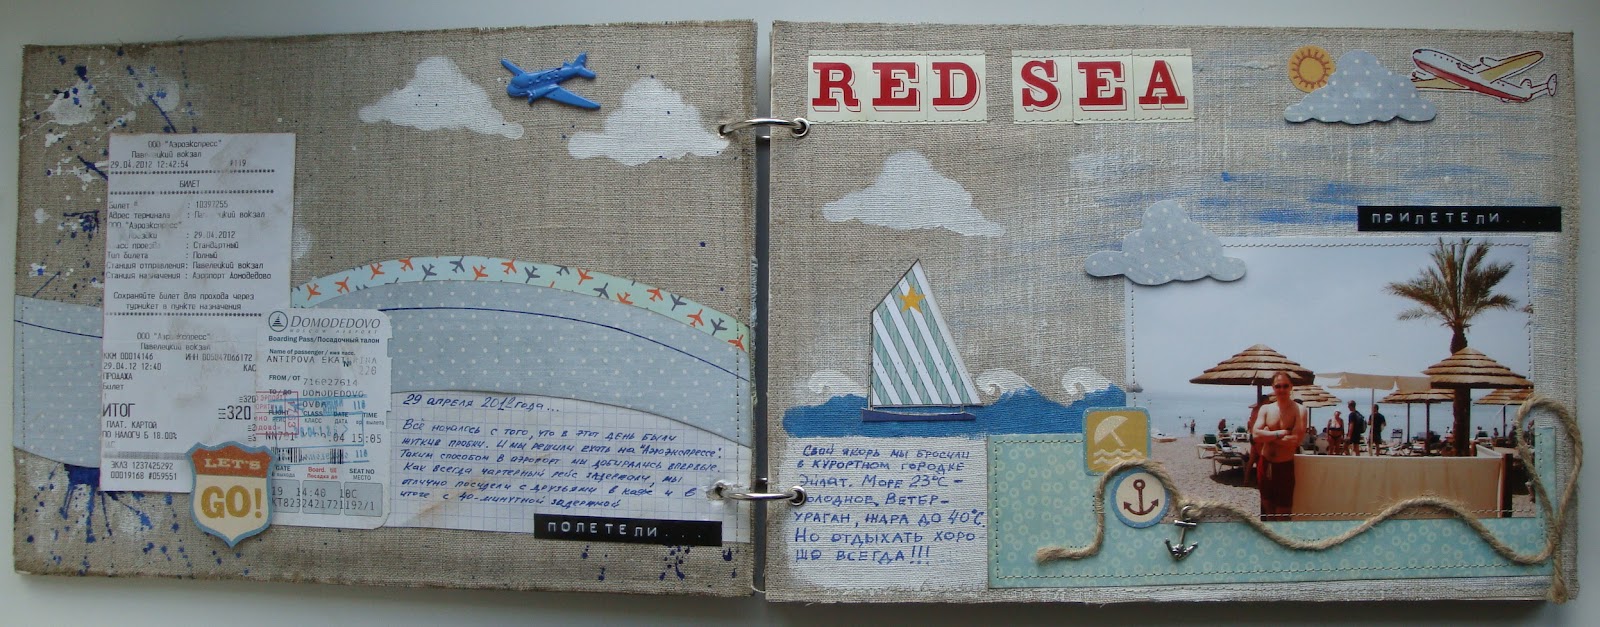 ООО "Аэроэкспресс"
Павелецкий вокзал
29.04.2012 12:42:54 #119
БИЛЕТ
Билет : 10397255
Адрес терминала : Павелецкий вокзал
ООО "Аэроэкспресс"
: 29.04.2012
: Стандартный
Тип билета : Полный
Станция отправления: Павелецкий вокзал
Станция назначения : Аэропорт Домодедово
Сохраняйте билет для прохода через
турникет в пункте назначения
ООО "Аэроэкспресс"
Павелецкий вокзал
ККМ 00014146 ИНН 005047066172
29.04.12 12:40 КАС
ПРОДАЖА
Билет
≡320
ИТОГ ≡320
ПЛАТ. КАРТОЙ
ПО НАЛОГУ Б 18.00%
ЭКЛЗ 1237425292
00019168 #059551
LET'S
GO!
DOMODEDOVO
MOSCOW AIRPORT
Boarding Pass/Посадочный талон
Name of passenger /
ANTIPOVA EKATERINA
№
FROM / ОТ 716027614
DOMODEDOVO
OVDA
КЛАСС ДАТА TIME
04 15:05
Board. till SEAT NO
МЕСТО
19 14:40 10C
29 апреля 2012 года...
Всё началось с того, что в этот день были
жуткие пробки. И мы решили ехать на "Аэроэкспрессе".
Таким способом в аэропорт мы добирались впервые.
Как всегда чартерный рейс задержали, мы
отлично посидели с друзьями в кафе и в
итоге с 40-минутной задержкой
ПОЛЕТЕЛИ...
RED SEA
ПРИЛЕТЕЛИ...
Свой якорь мы бросили
в курортном городке
Эйлат. Море 23°C -
холодное, ветер-
ураган, жара до 40°C.
Но отдыхать хоро-
шо всегда!!!